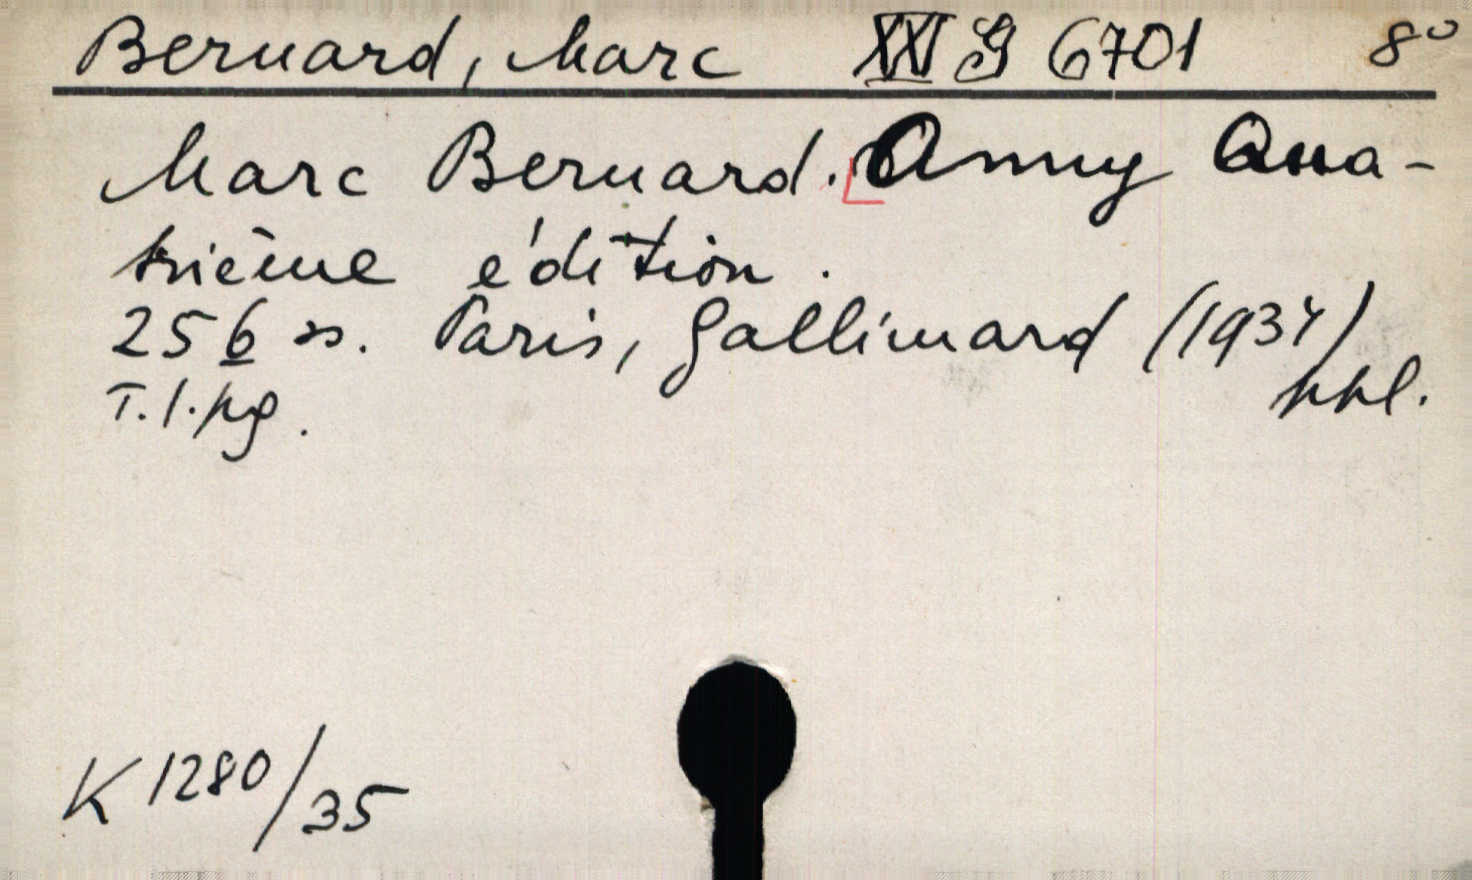 Bernard, Marc XXI G 6701 8°
Marc Bernard. Anny Qua-
trième édition.
256 ss. Paris, Gallimard (1934)
hhl.
T. 1. pg.
K 1280/35